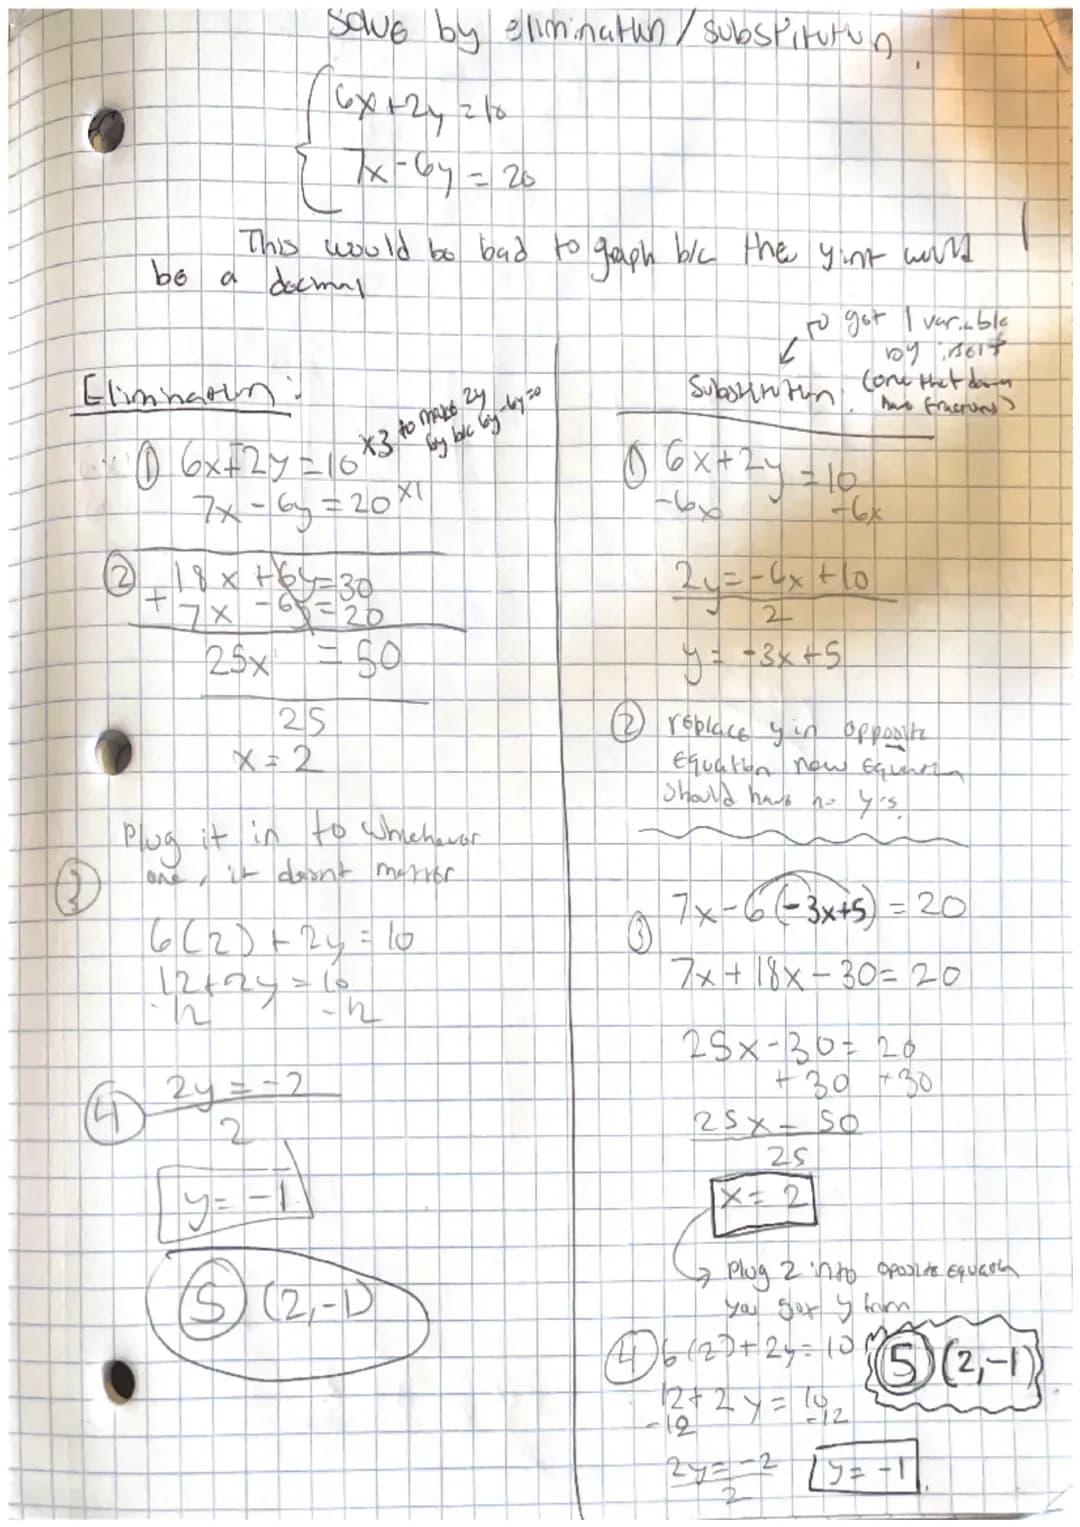 Solve by elimination / substitution.
6x+2y=10
7x-6y = 20
This would be bad to graph b/c the y int would
be a decmal
Elimination:
x3 to make 2y
6y b/c 6y-6y=0
① 6x+2y=10
7x-6y=20 x1
② 18x+6y=30
+ 7x -6y=20
25x = 50
25
x=2
Plug it in to whichever
③ one, it doesnt matter
6(2)+2y=10
12+2y=10
-12 -12
④ 2y=-2
2
y=-1
Ⓢ (2,-1)
to get 1 variable
by itself
(one that doesn
have fractions)
Substitution:
① 6x+2y=10
-6x -6x
2y=-6x+10
2
y=-3x+5
② replace y in opposite
Equation new Equation
should have no y's.
③ 7x-6(-3x+5)=20
7x+18x-30=20
25x-30=20
+30 +30
25x=50
25
x=2
Plug 2 into opposite Equation
you got y from
④ 6(2)+2y=10
12+2y=10
-12 -12
2y=-2
2
y=-1
Ⓢ (2,-1)